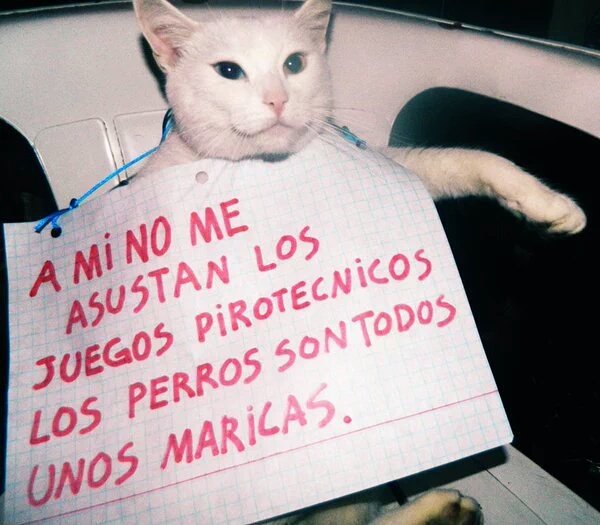 A Mi NO ME
ASUSTAN LOS
JUEGOS PiROTECNiCOS
LOS PERROS SON TODOS
UNOS MARiCAS.